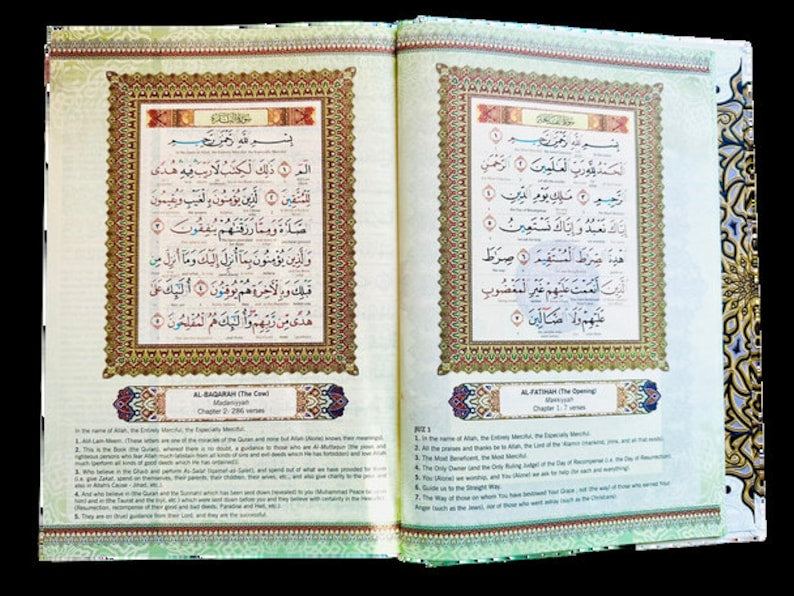 سُورَةُ الفَاتِحَة
بِسْمِ ٱللَّهِ ٱلرَّحْمَٰنِ ٱلرَّحِيمِ ١
ٱلْحَمْدُ لِلَّهِ رَبِّ ٱلْعَٰلَمِينَ ٢ ٱلرَّحْمَٰنِ
ٱلرَّحِيمِ ٣ مَٰلِكِ يَوْمِ ٱلدِّينِ ٤
إِيَّاكَ نَعْبُدُ وَإِيَّاكَ نَسْتَعِينُ ٥
ٱهْدِنَا ٱلصِّرَٰطَ ٱلْمُسْتَقِيمَ ٦ صِرَٰطَ
ٱلَّذِينَ أَنْعَمْتَ عَلَيْهِمْ غَيْرِ ٱلْمَغْضُوبِ
عَلَيْهِمْ وَلَا ٱلضَّآلِّينَ ٧
AL-FATIHAH (The Opening)
Makkiyyah
Chapter 1: 7 verses
JUZ 1
1. In the name of Allah, the Entirely Merciful, the Especially Merciful.
2. All the praises and thanks be to Allah, the Lord of the 'Alamin (mankind, jinns, and all that exists).
3. The Most Beneficent, the Most Merciful.
4. The Only Owner (and the Only Ruling Judge) of the Day of Recompense (i.e. the Day of Resurrection).
5. You (Alone) we worship, and You (Alone) we ask for help (for each and everything).
6. Guide us to the Straight Way.
7. The Way of those on whom You have bestowed Your Grace, not (the way) of those who earned Your
Anger (such as the Jews), nor of those who went astray (such as the Christians).
سُورَةُ البَقَرَة
بِسْمِ ٱللَّهِ ٱلرَّحْمَٰنِ ٱلرَّحِيمِ
الٓمٓ ١ ذَٰلِكَ ٱلْكِتَٰبُ لَا رَيْبَ فِيهِ هُدًى
لِّلْمُتَّقِينَ ٢ ٱلَّذِينَ يُؤْمِنُونَ بِٱلْغَيْبِ وَيُقِيمُونَ
ٱلصَّلَوٰةَ وَمِمَّا رَزَقْنَٰهُمْ يُنفِقُونَ ٣
وَٱلَّذِينَ يُؤْمِنُونَ بِمَآ أُنزِلَ إِلَيْكَ وَمَآ أُنزِلَ مِن
قَبْلِكَ وَبِٱلْءَاخِرَةِ هُمْ يُوقِنُونَ ٤ أُو۟لَٰٓئِكَ عَلَىٰ
هُدًى مِّن رَّبِّهِمْ وَأُو۟لَٰٓئِكَ هُمُ ٱلْمُفْلِحُونَ ٥
AL-BAQARAH (The Cow)
Madaniyyah
Chapter 2: 286 verses
In the name of Allah, the Entirely Merciful, the Especially Merciful.
1. Alif-Lam-Meem. (These letters are one of the miracles of the Quran and none but Allah (Alone) knows their meanings).
2. This is the Book (the Quran), whereof there is no doubt, a guidance to those who are Al-Muttaqun (the pious and
righteous persons who fear Allah much (abstain from all kinds of sins and evil deeds which He has forbidden) and love Allah
much (perform all kinds of good deeds which He has ordained)).
3. Who believe in the Ghaib and perform As-Salat (Iqamat-as-Salat), and spend out of what we have provided for them
(i.e. give Zakat, spend on themselves, their parents, their children, their wives, etc., and also give charity to the poor and
also in Allah's Cause - Jihad, etc.).
4. And who believe in the Quran and the Sunnah) which has been sent down (revealed) to you (Muhammad Peace be upon
him) and in the Taurat and the Injil, etc.) which were sent down before you and they believe with certainty in the Hereafter.
(Resurrection, recompense of their good and bad deeds, Paradise and Hell, etc.).
5. They are on (true) guidance from their Lord, and they are the successful.